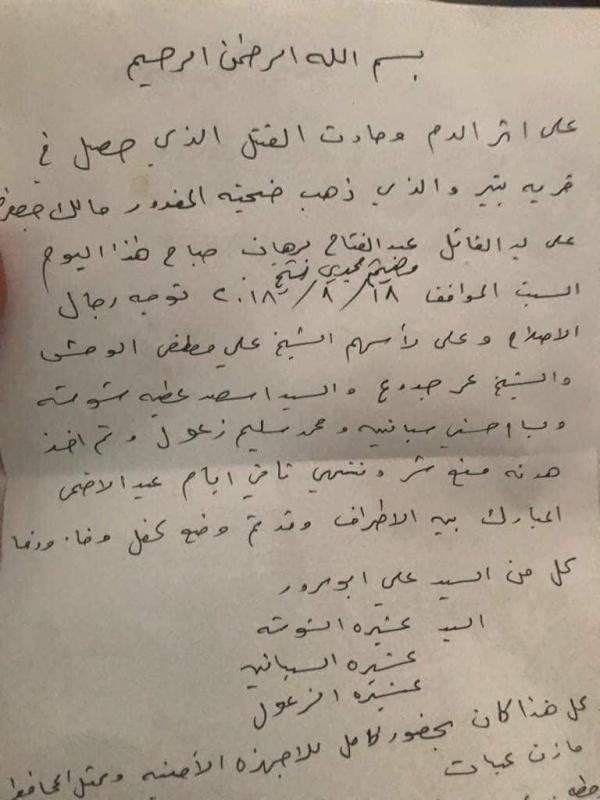 بسم الله الرحمن الرحيم
على اثر الدم وحادث القتل الذي حصل في
قريه بتير والذي ذهب ضحيته المغدور مالك جعفر
على يد القاتل عبد الفتاح برهان صباح هذا اليوم
مجدي
السبت الموافق ١٨/٨/٢٠١٨ توجه رجال
الاصلاح وعلى رأسهم الشيخ علي مصطفى الوحش
والشيخ عمر جدوع والسيد اسعد عطيه شوشه
حسني سباتيه ومحمد سليم زعول وتم اخذ
هدنه منع شر وتنتهي ثاني ايام عيد الاضحى
المبارك بين الاطراف وقد تم وضع كفل وفا ودفا
كل من السيد علي ابو سرور
السيد عشيره الشوشه
عشيره السباتيه
عشيره الزعول
كل هذا كان بحضور كامل للاجهزه الأمنيه وممثل المحافظ
مازن عبات